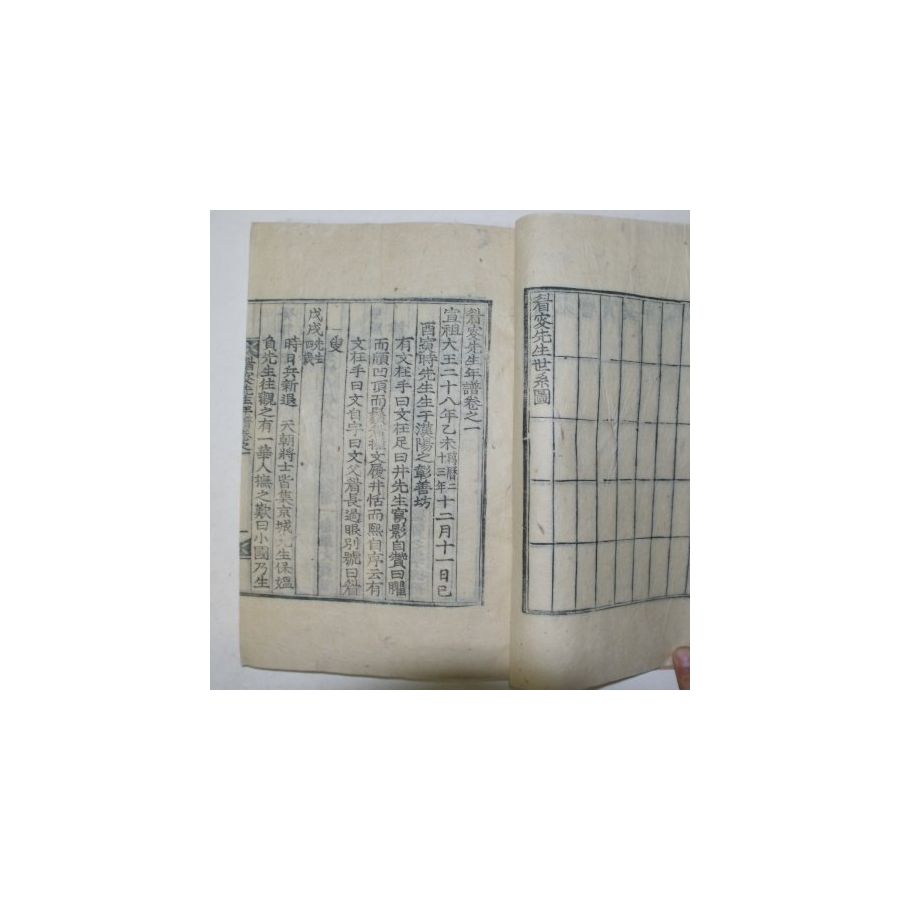 睂叜先生世系圖
睂叜先生年譜卷之一
宣祖大王二十八年乙未萬曆二十三年十二月十一日己
酉寅時先生生于漢陽之彰善坊
有文在手曰文在足曰井先生寫影自贊曰臞
而頎凹頂而鬚眉握文履井恬而熙自序云有
文在手曰文自字曰文父睂長過眼別號曰睂
叟
戊戌先生四歲
時日兵新退 天朝將士皆集京城先生保媼
負先生往觀之有一華人撫之歎曰小國乃生
睂叜先生年譜卷之一 一